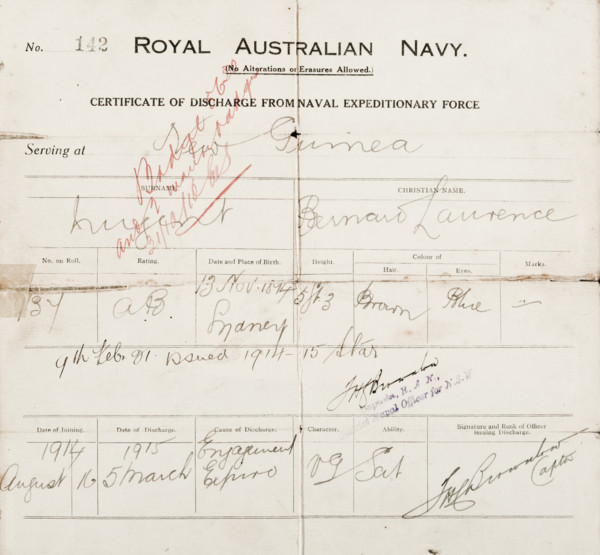 No. 142 ROYAL AUSTRALIAN NAVY.
(No Alterations or Erasures Allowed.)
CERTIFICATE OF DISCHARGE FROM NAVAL EXPEDITIONARY FORCE
Serving at New Guinea
SURNAME. CHRISTIAN NAME.
Nugent Bernard Laurence
No. on Roll. Rating. Date and Place of Birth. Height. Colour of Marks.
Hair. Eyes.
137 AB. 13 Nov. 1894 5 ft 3 Brown Blue —
Sydney
9th Feb. 21. issued 1914-15 Star
Brownlow
Commander, R. A. N.,
District Naval Officer for N.S.W
Date of Joining. Date of Discharge. Cause of Discharge. Character. Ability. Signature and Rank of Officer issuing Discharge.
1914 1915 Engagement VG Sat Brownlow
August 16 5 March Expired Captn